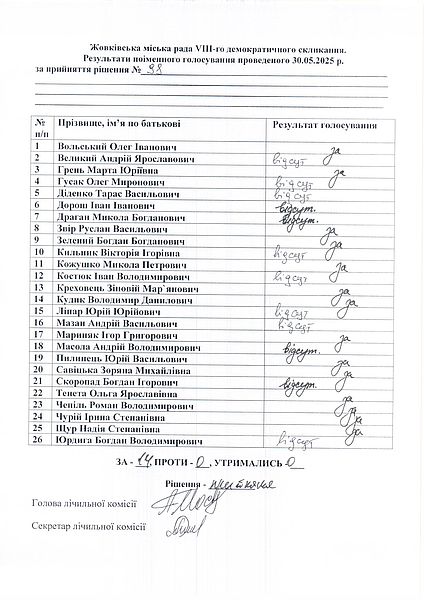 Жовківська міська рада VIII-го демократичного скликання.
Результати поіменного голосування проведеного 30.05.2025 р.
за прийняття рішення № 98
№ п/п Прізвище, ім’я по батькові Результат голосування
1 Вольський Олег Іванович за
2 Великий Андрій Ярославович відсут
3 Грень Марта Юріївна за
4 Гусак Олег Миронович відсут
5 Діденко Тарас Васильович відсут
6 Дорош Іван Іванович відсут.
7 Драган Микола Богданович відсут.
8 Звір Руслан Васильович за
9 Зелений Богдан Богданович за
10 Кильник Вікторія Ігорівна відсут
11 Кожушко Микола Петрович за
12 Костюк Іван Володимирович відсут
13 Креховець Зіновій Мар`янович за
14 Кудик Володимир Данилович за
15 Лінар Юрій Юрійович відсут
16 Мазан Андрій Васильович відсут
17 Мариняк Ігор Григорович за
18 Масола Андрій Володимирович відсут.
19 Пилипець Юрій Васильович за
20 Савіцька Зоряна Михайлівна за
21 Скоропад Богдан Ігорович відсут.
22 Тенета Ольга Ярославівна за
23 Чепіль Роман Володимирович за
24 Чурій Ірина Степанівна за
25 Щур Надія Степанівна за
26 Юрдига Богдан Володимирович відсут
ЗА - 14, ПРОТИ - 0, УТРИМАЛИСЬ 0
Рішення - прийняте
Голова лічильної комісії
Секретар лічильної комісії